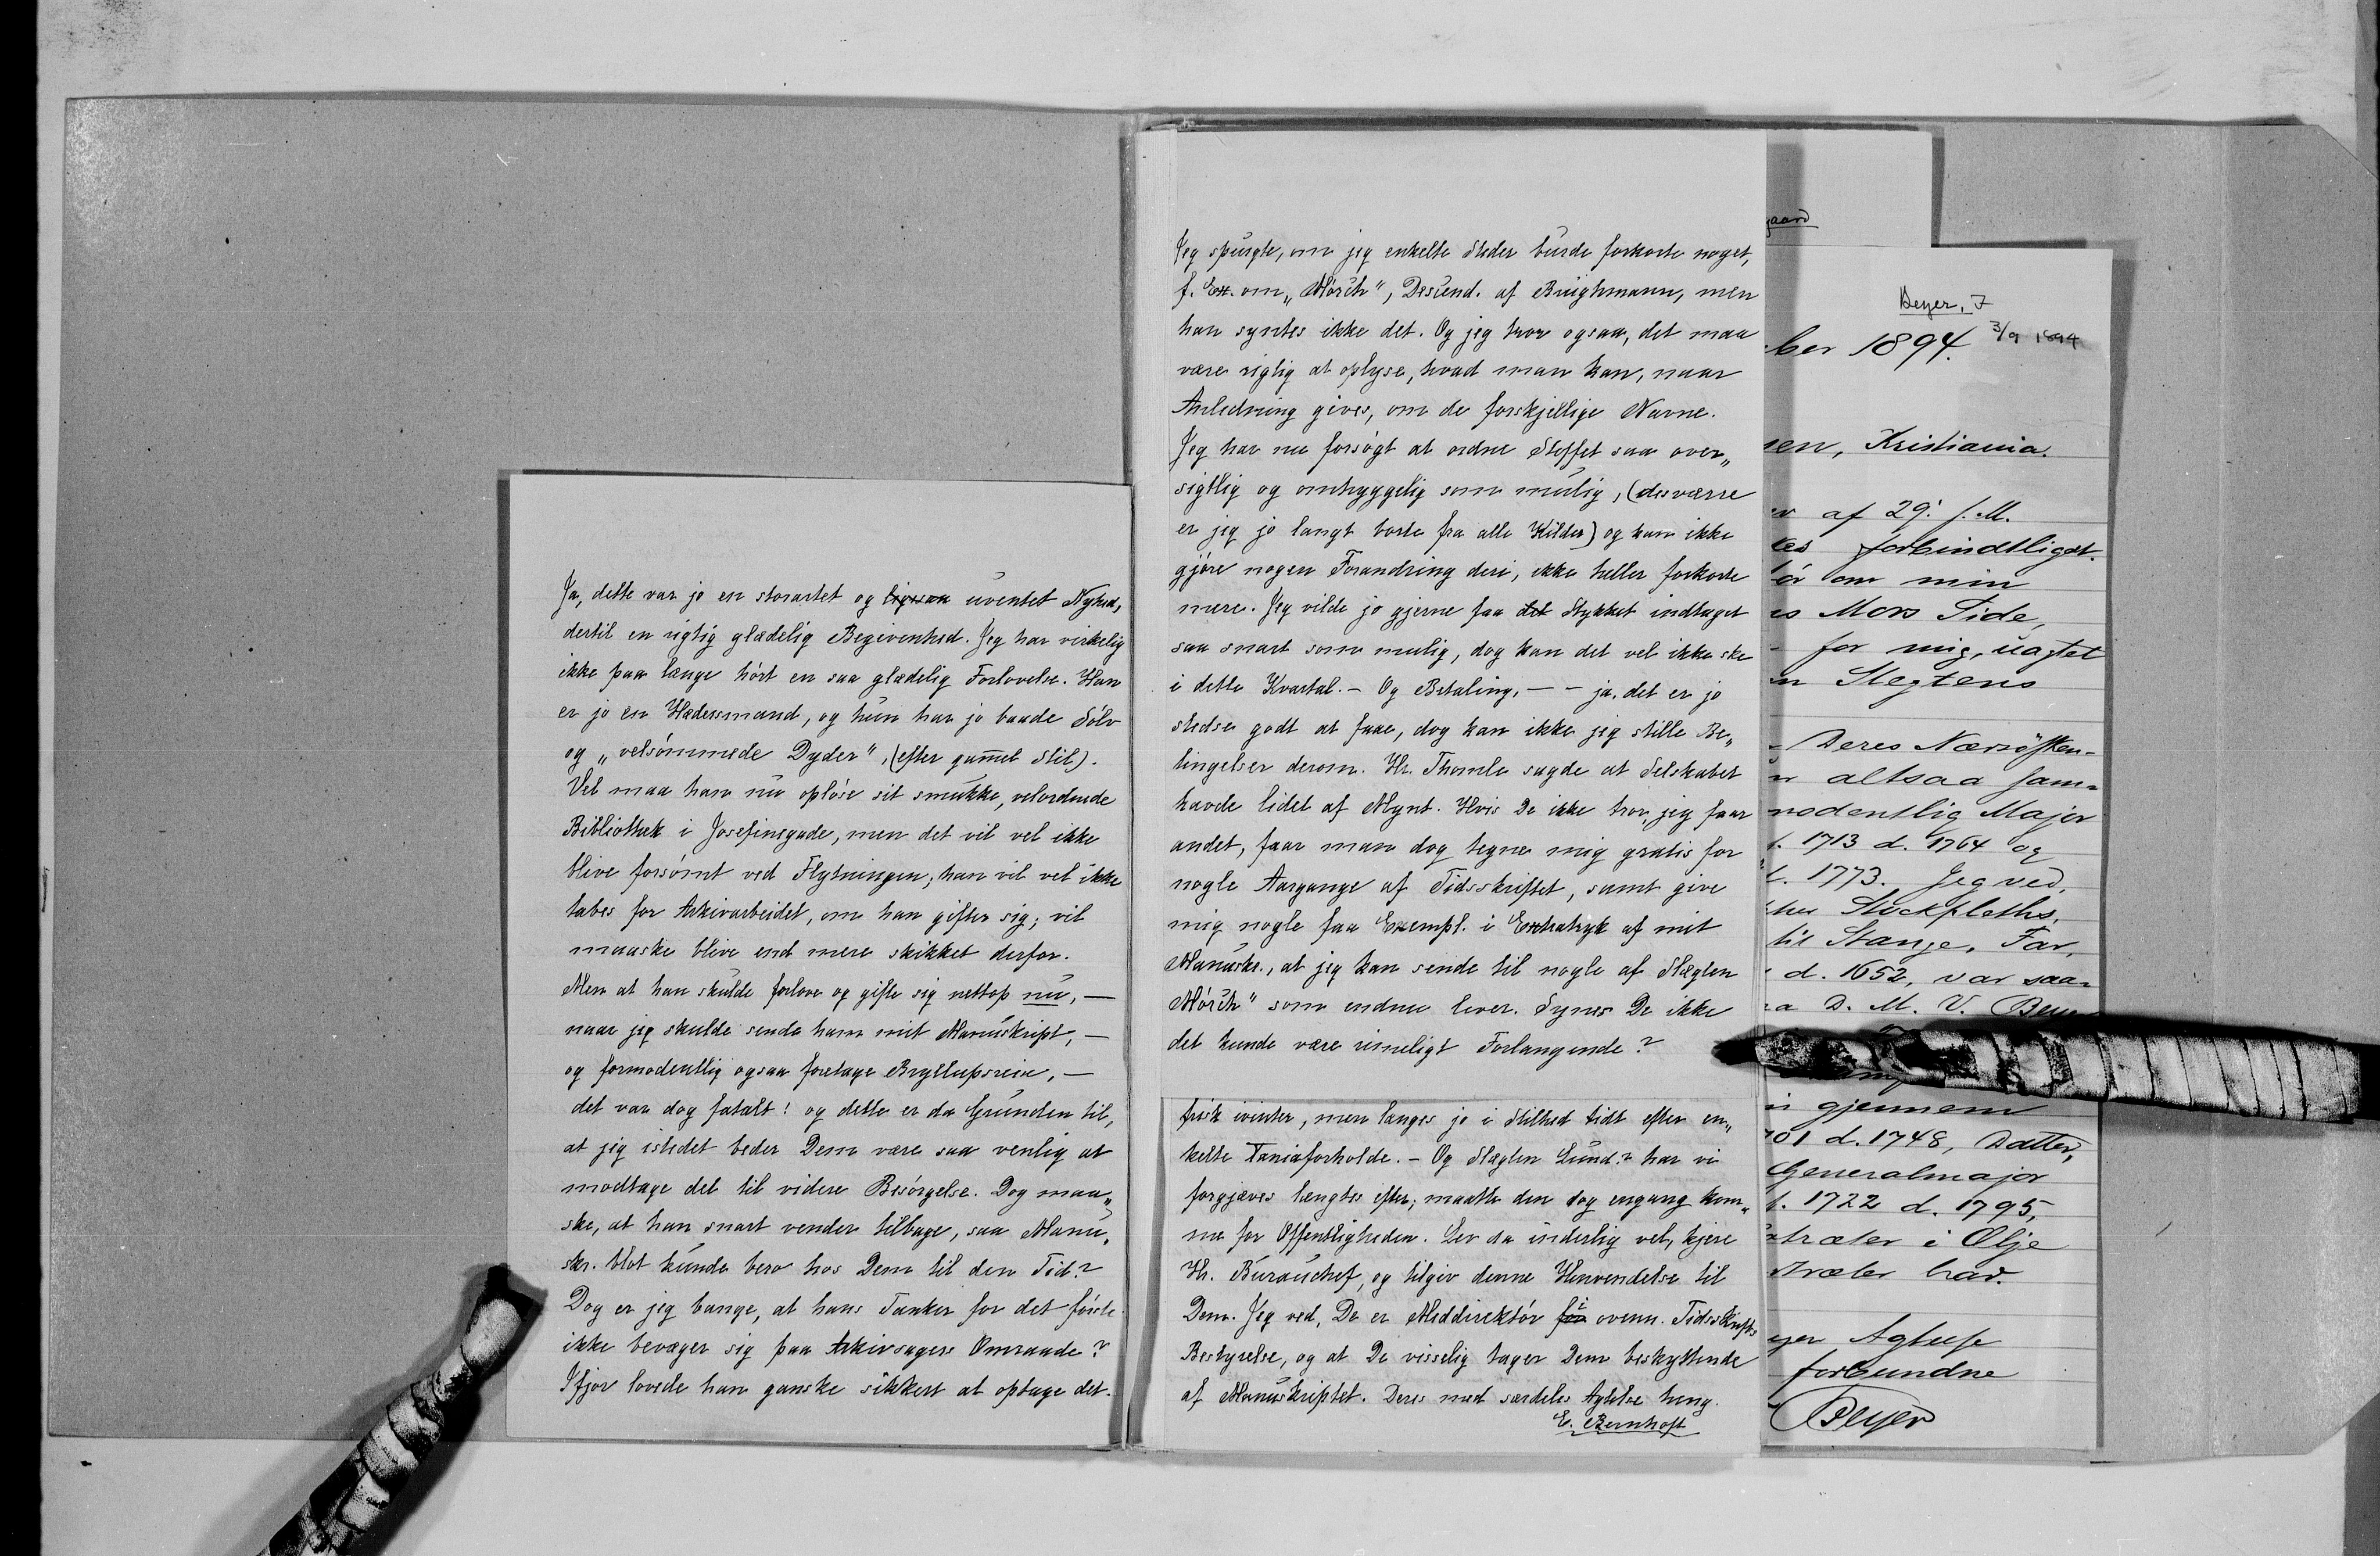 Ja, dette var jo en storartet og ligesaa uventet Nyhed,
dertil en rigtig glædelig Begivenhed. Jeg har virkelig
ikke paa længe hört en saa glædelig Forlovelse. Han
er jo en Hædersmand, og hun har jo baade Sölv
og „velsömmede Dyder", (efter gammel Stil).
Vel maa han nu oplöse sit smukke, velordnede
Bibliothek i Josefinegade, men det vil vel ikke
blive forsömt ved Flytningen; han vil vel ikke
tabes for Arkivarbeidet, om han gifter sig; vil
maaske blive end mere skikket derfor.
Men at han skulde forlove og gifte sig nettop nu, —
naar jeg skulde sende ham mit Manuskript, —
og formodentlig ogsaa foretage Bryllupsreise, —
det var dog fatalt! og dette er da Grunden til,
at jeg istedet beder Dem være saa venlig at
modtage det til videre Besörgelse. Dog maa„
ske, at han snart vender tilbage, saa Manu„
skr. blot kunde bero hos Dem til den Tid?
Dog er jeg bange, at hans Tanker for det förste
ikke bevæger sig paa Arkivsagers Omraade?
Ifjor lovede han ganske sikkert at optage det.
Jeg spurgte, om jeg enkelte Steder burde forkorte noget,
f. Ex. om „Mörch", Descend. af Brüghmann, men
han syntes ikke det. Og jeg tror ogsaa, det maa
være rigtig at oplyse, hvad man kan, naar
Anledning gives, om de forskjellige Navne.
Jeg har nu forsögt at ordne Stoffet saa over„
sigtlig og omhyggelig som mulig, (desværre
er jeg jo langt borte fra alle Kilder) og kan ikke
gjöre nogen Forandring deri, ikke heller forkorte
mere. Jeg vilde jo gjerne faa det Stykket indtaget
saa snart som mulig, dog kan det vel ikke ske
i dette Kvartal. – Og Betaling, – – ja, det er jo
stedse godt at faae, dog kan ikke jeg stille Be„
tingelser derom. Hr. Thomle sagde at Selskabet
havde lidet af Mynt. Hvis De ikke tror, jeg faar
andet, faar man dog tegne mig gratis for
nogle Aargange af Tidsskriftet, samt give
mig nogle faa Exempl. i Extratryk af mit
Manuskr., at jeg kan sende til nogle af Slægten
Mörch" som endnu lever. Synes De ikke
det kunde være rimeligt Forlangende?
frisk ivinter, men længes jo i Stilhed tidt efter en„
kelte Taniaforholde. – Og Slægten Lund? har vi
forgjæves længtes efter; maatte den dog engang kom„
me for Offentligheden. Lev da inderlig vel, kjere
Hr. Burauchef, og tilgiv denne Henvendelse til
Dem. Jeg ved, De er Meddirektör for i ovenn. Tidsskrifts
Bestyrelse, og at De visselig tager Dem beskyttende
af Manuskriptet. Deres med særdeles Agtelse heng.
E. Bernhoft
gaard
Beyer, F
3/9 1894
ber 1894.
sen, Kristiania.
af 29. f. M.
tes forbindtligst.
ör om min
es Mors Side,
for mig, uagtet
n Slegtens
Deres Næssösken-
n altsaa sam-
modentlig Major
f. 1713 d. 1764 og
f. 1773. Jeg ved,
her Stockfleths,
til Stange, Far,
d. 1652, var saa-
a D. M. V. Beyer
n gjennem
701 d. 1748, Datter,
Generalmajor
f. 1722 d. 1795,
træter i Olje
træter har.
yer Agtelse
forbundne
Beyer